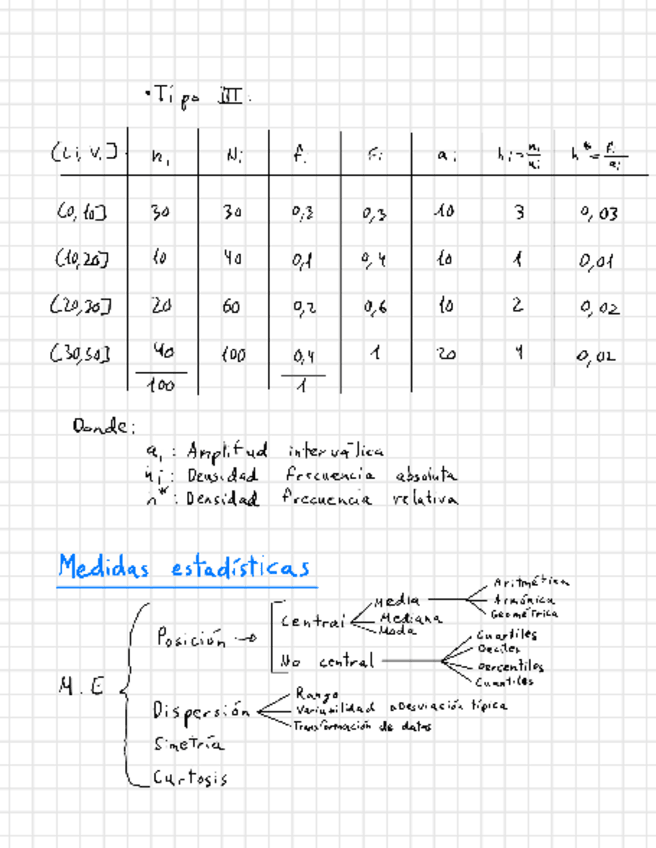 • Tipo III:
(Li, Vi] ni Ni fi Fi ai hi = ni/ai h* = fi/ai
(0, 10] 30 30 0,3 0,3 10 3 0,03
(10,20] 10 40 0,1 0,4 10 1 0,01
(20,30] 20 60 0,2 0,6 10 2 0,02
(30,50] 40 100 0,4 1 20 4 0,02
100 1
Donde:
ai : Amplitud interválica
hi : Densidad frecuencia absoluta
h* : Densidad frecuencia relativa
Medidas estadísticas
M.E
Posición →
Central
Media
Aritmética
Armónica
Geométrica
Mediana
Moda
No central
Cuartiles
Deciles
Percentiles
Cuantiles
Dispersión
Rango
Variabilidad o Desviación típica
Transformación de datos
Simetría
Curtosis